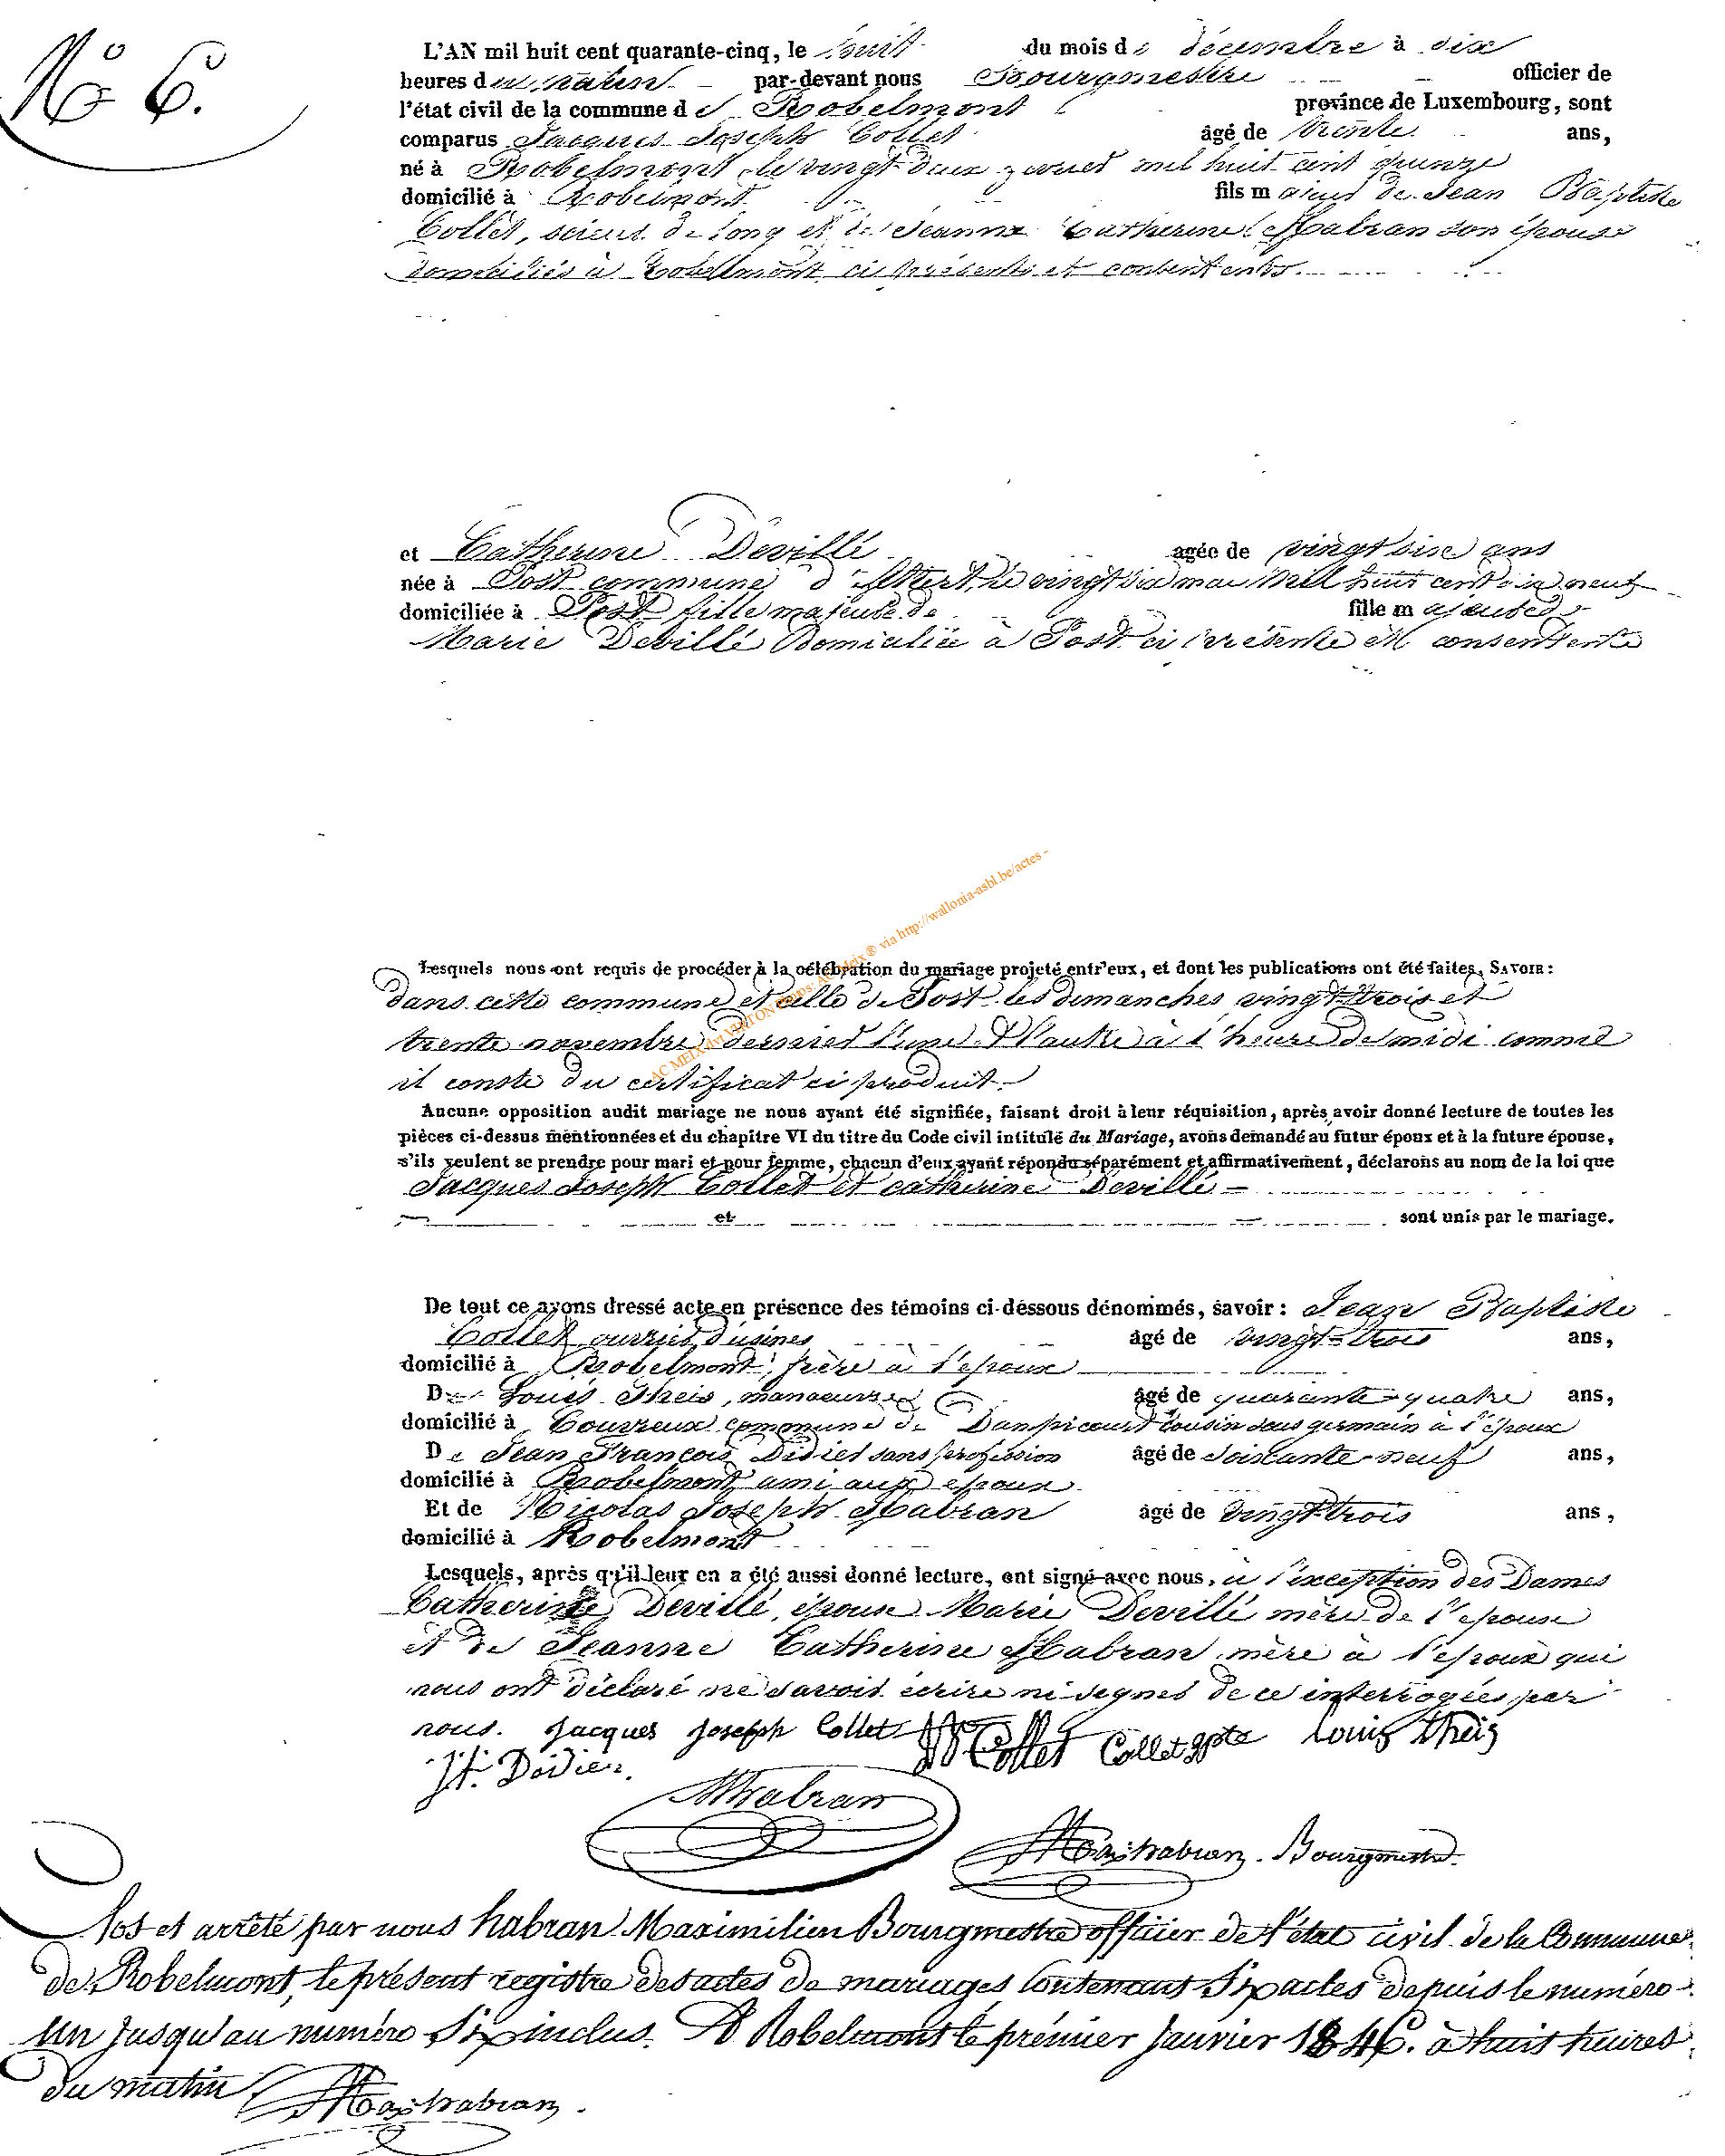 N° 6.
L'AN mil huit cent quarante-cinq, le huit du mois de décembre à dix
heures du matin par-devant nous Bourgmestre officier de
l'état civil de la commune de Robelmont province de Luxembourg, sont
comparus Jacques Joseph Collet âgé de trente ans,
né à Robelmont, le vingt deux mil huit cent quinze
domicilié à Robelmont fils majeur de Jean Baptiste
Collet, scieur de long et de Jeanne Catherine Habran son épouse
domiciliés à Robelmont ci présents et consentents
et Catherine Devillé agée de vingt six ans
née à Post commune d'Attert, le vingt six mai mil huit cent dix neuf
domiciliée à Post fille majeure de fille majeure de
Marie Devillé Domiciliée à Post ci présente et consentente
Lesquels nous ont requis de procéder à la célébration du mariage projeté entr'eux, et dont les publications ont été faites, SAVOIR:
dans cette commune et celle de Post les dimanches vingt-trois et
trente novembre dernier l'une & l'autre à l'heure de midi comme
il conste du certificat ci produit.
AC MEIX dvt VIRTON via http://wallonia-asbl.be/actes -
Aucune opposition audit mariage ne nous ayant été signifiée, faisant droit à leur réquisition, après avoir donné lecture de toutes les
pièces ci-dessus mentionnées et du chapitre VI du titre du Code civil intitulé du Mariage, avons demandé au futur époux et à la future épouse,
s'ils veulent se prendre pour mari et pour femme, chacun d'eux ayant répondu séparément et affirmativement, déclarons au nom de la loi que
Jacques Joseph Collet et catherine Devillé
et sont unis par le mariage.
De tout ce avons dressé acte en présence des témoins ci-dessous dénommés, savoir: Jean Baptiste
Collet ouvrier d'usines âgé de vingt-trois ans,
domicilié à Robelmont, frère à l'epoux
De Louis Theis, manoeuvre âgé de quarante-quatre ans,
domicilié à Couvreux commune de Dampicourt cousin sous germain à l'époux
De Jean François Didier sans profession âgé de soixante-neuf ans,
domicilié à Robelmont ami aux epoux
Et de Nicolas Joseph Habran âgé de vingt-trois ans,
domicilié à Robelmont
Lesquels, après qu'il leur en a été aussi donné lecture, ont signé avec nous, à l'exception des Dames
Catherine Devillé, épouse Marie Devillé mère de l'epouse
et de Jeanne Catherine Habran, mère à l'epoux qui
nous ont déclaré ne savoir écrire ni signer de ce interrogées par
nous. Jacques Joseph Collet Collet Collet Louis theis
J f. Didier.
Habran
Max habran. Bourgmestre.
Clos et arrêté par nous habran Maximilien Bourgmestre officier de l'état civil de la Commune
de Robelmont, le présent registre des actes de mariages contenant Six actes depuis le numéro
un jusqu'au numéro Six inclus. A Robelmont le prémier Janvier 1846. à huit heures
du matin
Max habran.